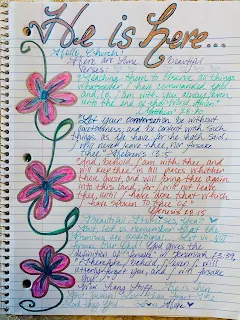 He is here...
Hello, Church!
Here are some beautiful
verses:
"Teaching them to observe all things
whatsoever I have commanded you:
and, lo, I am with you always, even
unto the end of the world. Amen."
Matthew 28:20
"Let your conversation be without
covetousness; and be content with such
things as ye have: for he hath said,
I will never leave thee, nor forsake
thee." Hebrews 13:5
"And, behold, I am with thee, and
will keep thee in all places whither
thou goest, and will bring thee again
into this land; for I will not leave
thee, until I have done that which
I have spoken to thee of."
Genesis 28:15
Beautiful
But let us remember that the
are conditional.
our God! God gives the
definition of "forsake" in Jeremiah 23:39
"Therefore, behold, I, even I, will
utterly forget you, and I will forsake
you,"